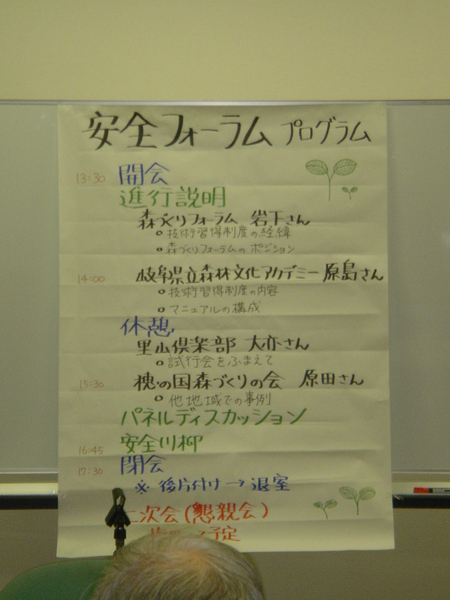 安全フォーラム プログラム
13:30 開会
進行説明
森づくりフォーラム 岩下さん
技術習得制度の経緯
森づくりフォーラムのポジション
14:00 岐阜県立森林文化アカデミー 原島さん
技術習得制度の内容
マニュアルの構成
休憩
里山倶楽部 大亦さん
試行会をふまえて
15:30 槐の国森づくりの会 原田さん
他地域での事例
パネルディスカッション
16:45 安全川柳
17:30 閉会
※後片付け→退室
二次会(懇親会)
予定